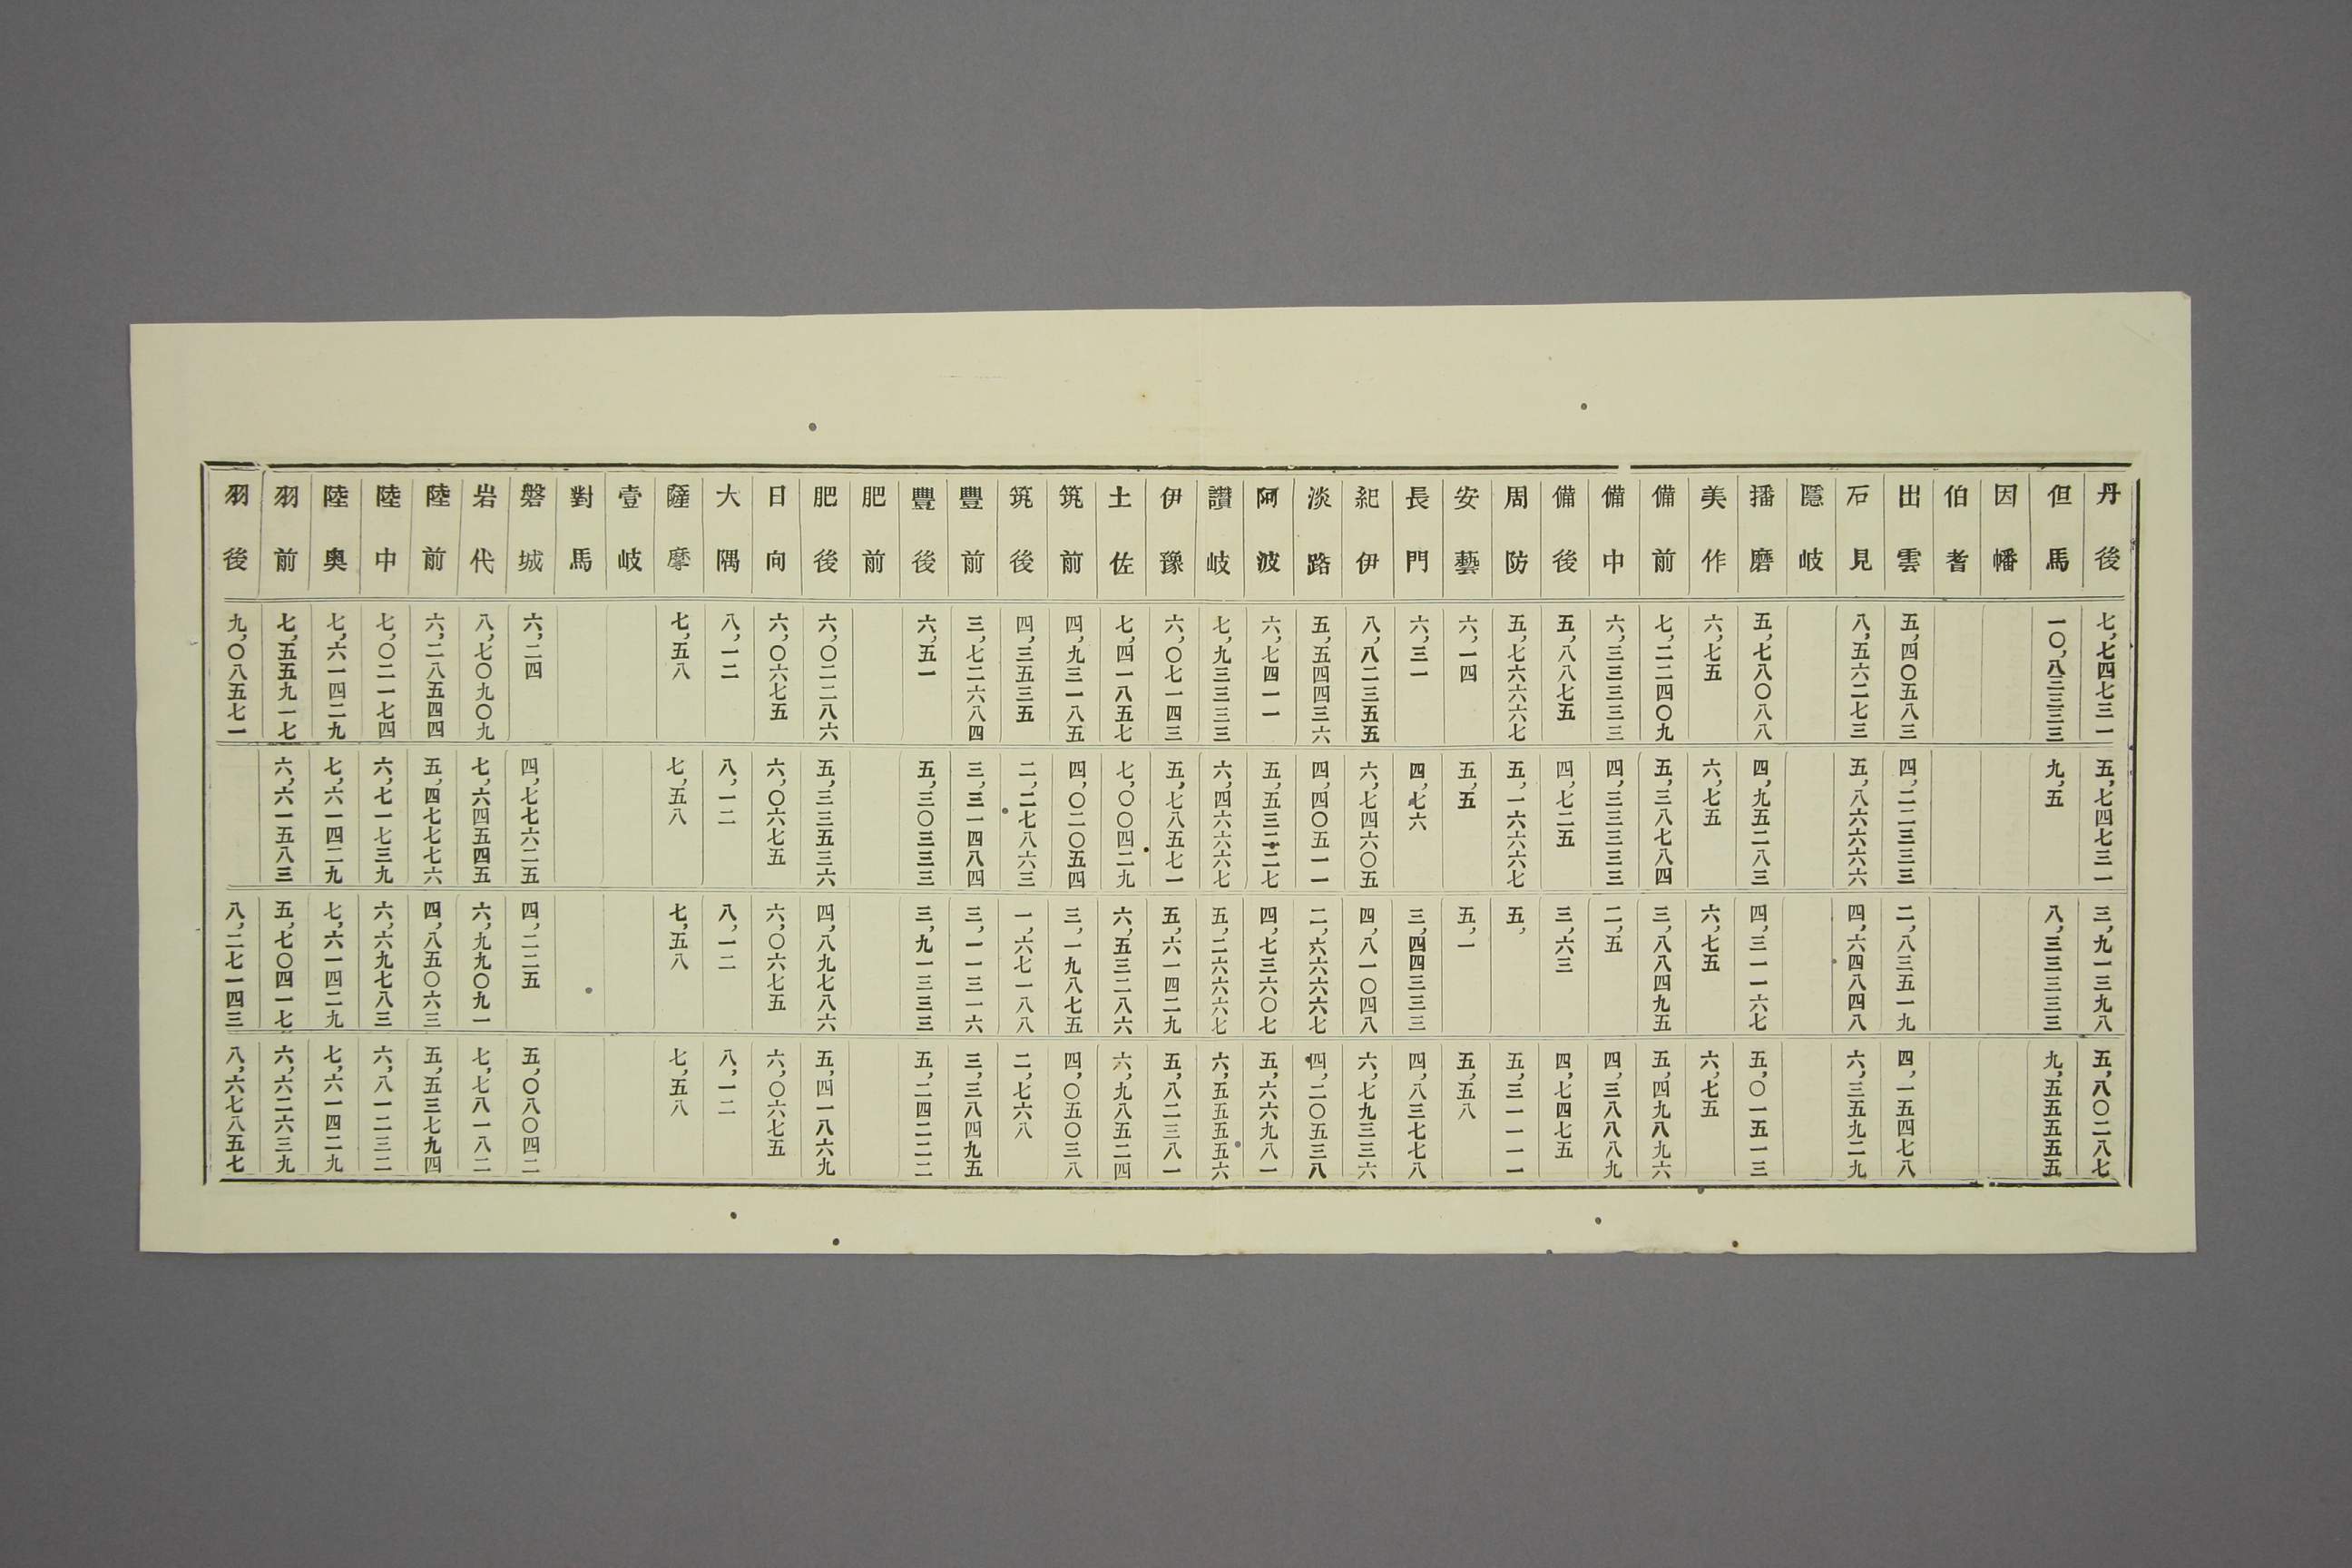 丹後 七,七四七三一 五,七四七三一 三,九一三九八 五,八〇二八七
但馬 一〇,八三三三三 九,五 八,三三三三三 九,五五五五五
因幡
伯耆
出雲 五,四〇五八三 四,二二三三三 二,八三五一九 四,一五四七八
石見 八,五六二七三 五,八六六六六 四,六四八四八 六,三五九二九
隱岐
播磨 五,七八〇八八 四,九五二八三 四,三一一六七 五,〇一五一三
美作 六,七五 六,七五 六,七五 六,七五
備前 七,二二四〇九 五,三八七八四 三,八八四九五 五,四九八九六
備中 六,三三三三三 四,三三三三三 二,五 四,三八八八九
備後 五,八八七五 四,七二五 三,六三 四,七四七五
周防 五,七六六六七 五,一六六六七 五, 五,三一一一一
安藝 六,一四 五,五 五,一 五,五八
長門 六,三一 四,七六 三,四四三三三 四,八三七七八
紀伊 八,八二三五五 六,七四六〇五 四,八一〇四八 六,七九三三六
淡路 五,五四四三六 四,四〇五一一 二,六六六六七 四,二〇五三八
阿波 六,七四一一 五,五三二二七 四,七三六〇七 五,六六九八一
讃岐 七,九三三三三 六,四六六六七 五,二六六六七 六,五五五五六
伊豫 六,〇七一四三 五,七八五七一 五,六一四二九 五,八二三八一
土佐 七,四一八五七 七,〇〇四二九 六,五三二八六 六,九八五二四
筑前 四,九三一八五 四,〇二〇五四 三,一九八七五 四,〇五〇三八
筑後 四,三五三五 二,二七八六三 一,六七一八八 二,七六八
豐前 三,七二六八四 三,三一四八四 三,一一三一六 三,三八四九五
豐後 六,五一 五,三〇三三三 三,九一三三三 五,二四二二二
肥前
肥後 六,〇二二八六 五,三三五三六 四,八九七八六 五,四一八六九
日向 六,〇六七五 六,〇六七五 六,〇六七五 六,〇六七五
大隅 八,一二 八,一二 八,一二 八,一二
薩摩 七,五八 七,五八 七,五八 七,五八
壹岐
對馬
磐城 六,二四 四,七七六二五 四,二二五 五,〇八〇四二
岩代 八,七〇九〇九 七,六四五四五 六,九九〇九一 七,七八一八二
陸前 六,二八五四四 五,四七七七六 四,八五〇六三 五,五三七九四
陸中 七,〇二一七四 六,七一七三九 六,六九七八三 六,八一二三二
陸奥 七,六一四二九 七,六一四二九 七,六一四二九 七,六一四二九
羽前 七,五五九一七 六,六一五八三 五,七〇四一七 六,六二六三九
羽後 九,〇八五七一 八,二七一四三 八,六七八五七